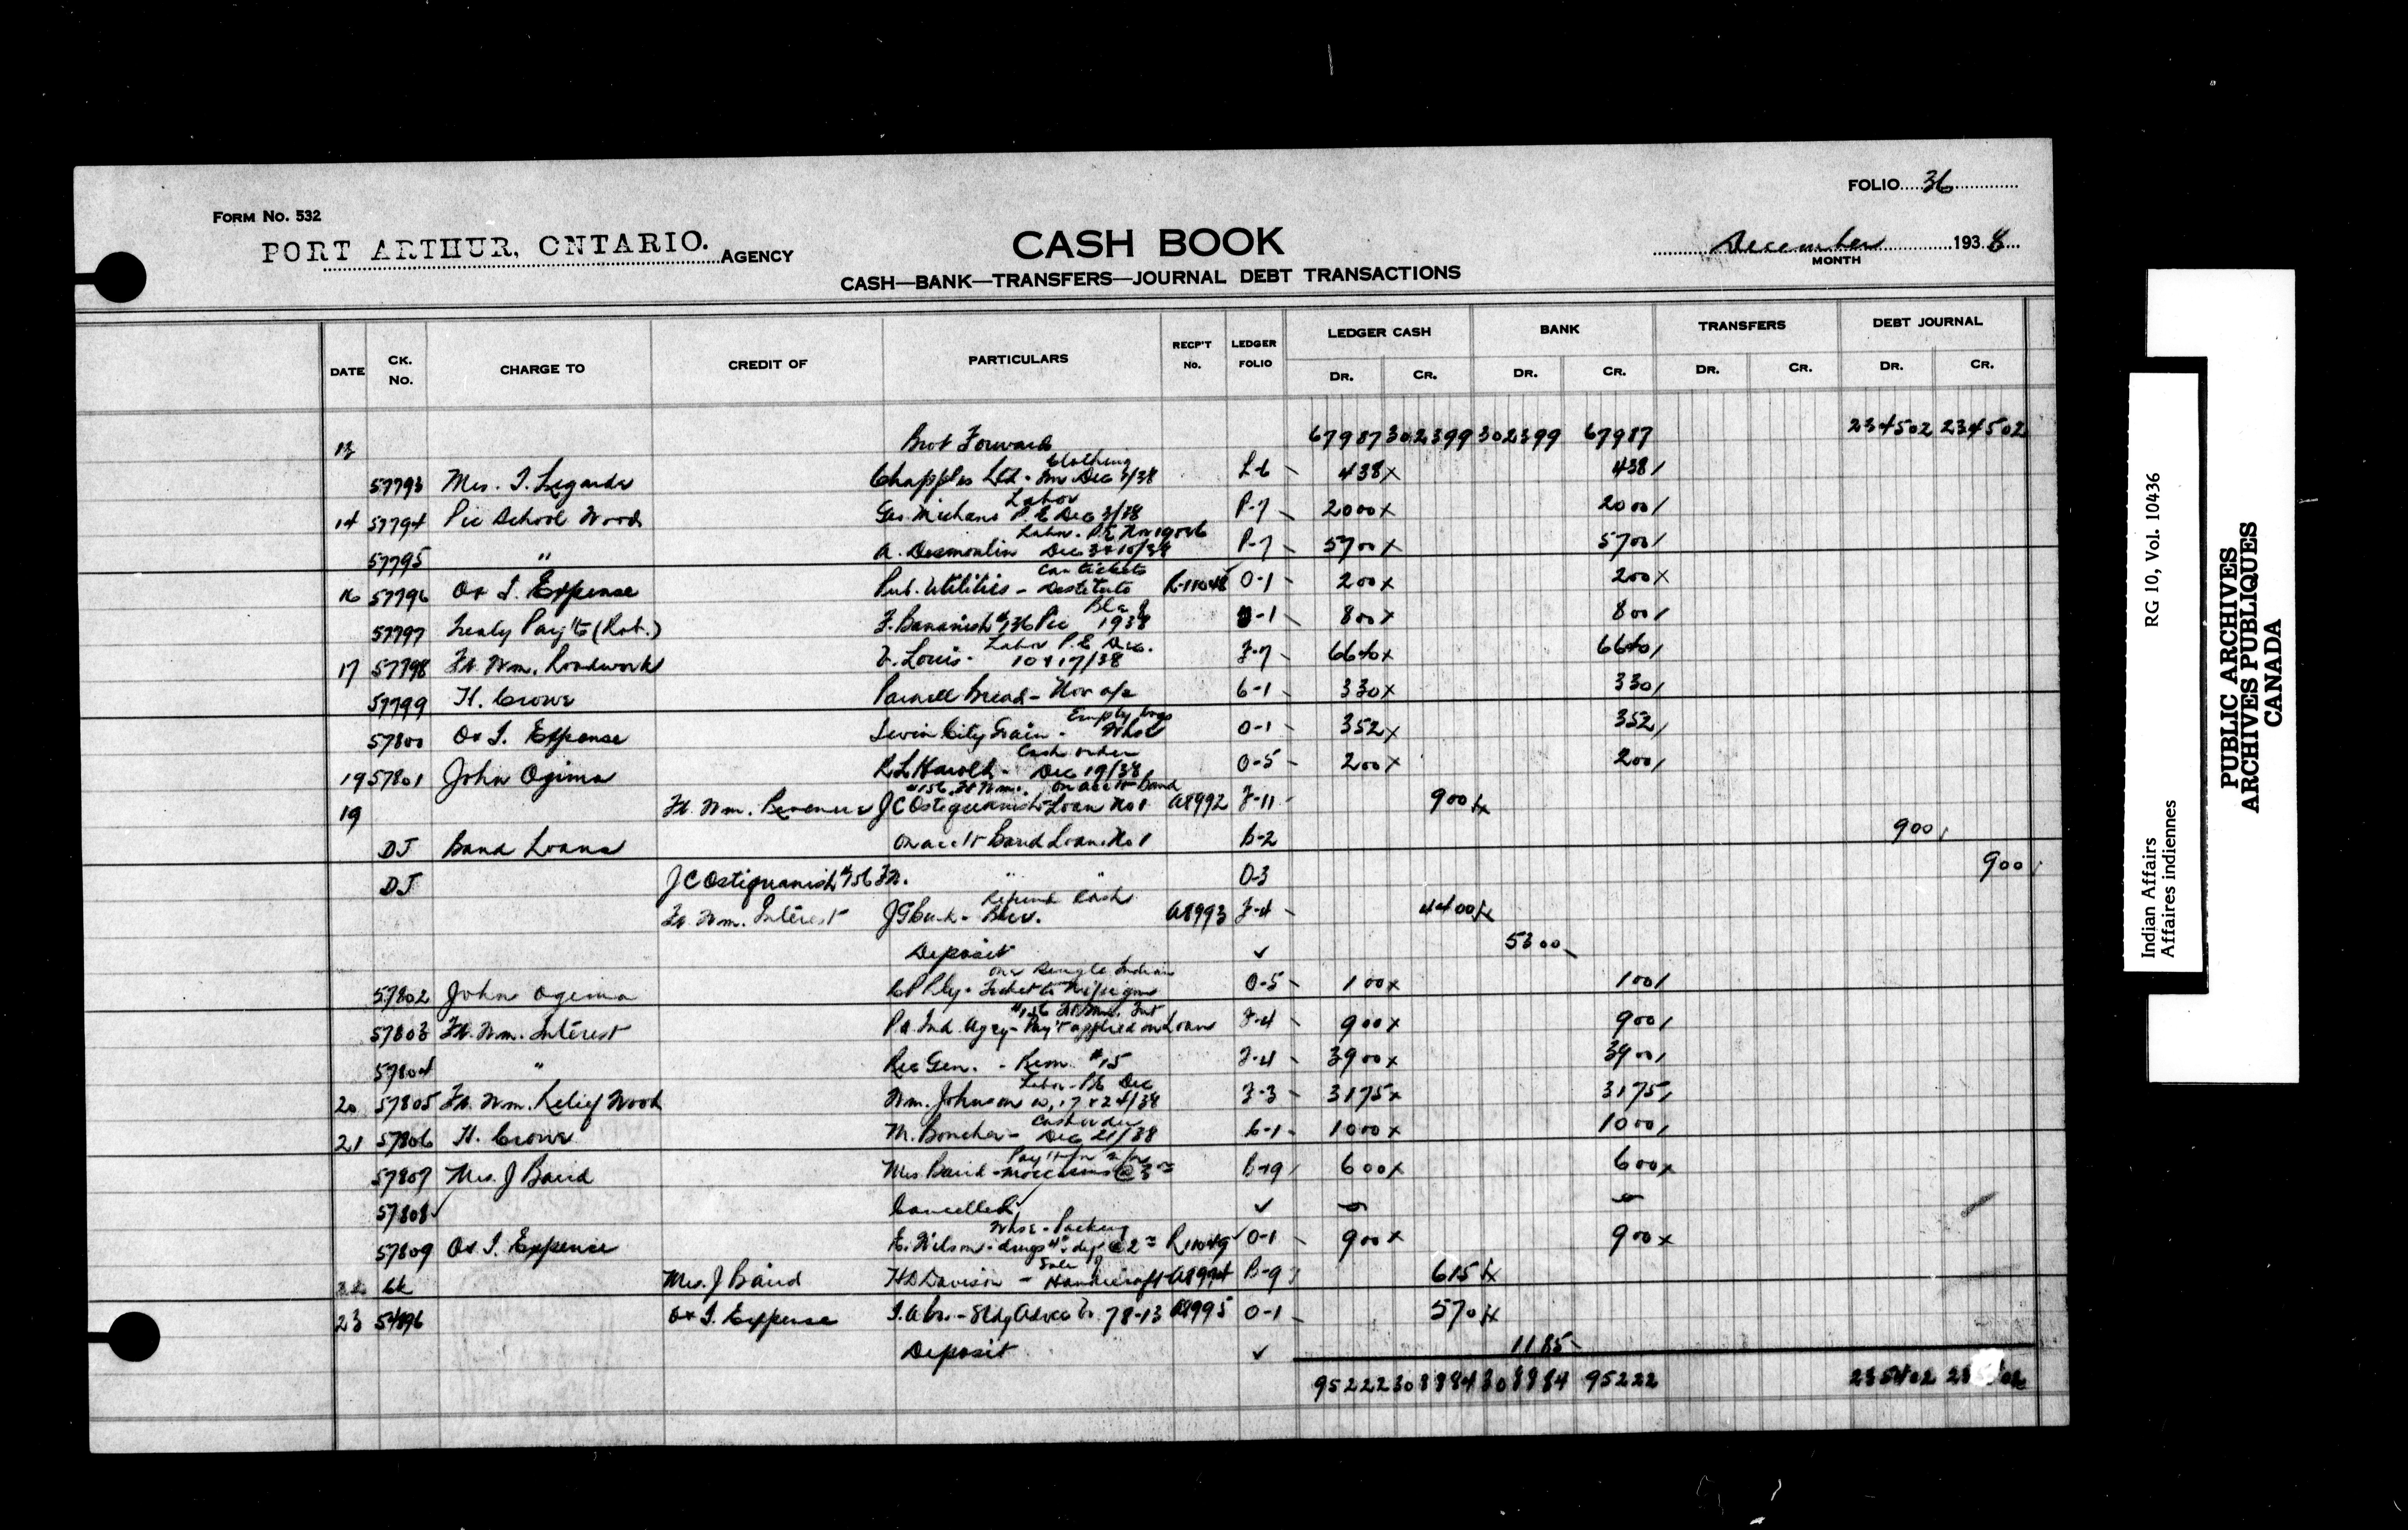 FOLIO 36
FORM NO. 532
PORT ARTHUR, ONTARIO. AGENCY
CASH BOOK
December 1938
MONTH
CASH—BANK—TRANSFERS—JOURNAL DEBT TRANSACTIONS
DATE CK. No. CHARGE TO CREDIT OF PARTICULARS RECP'T No. LEDGER FOLIO LEDGER CASH BANK TRANSFERS DEBT JOURNAL
DR. CR. DR. CR. DR. CR. DR. CR.
13 Brot Forward 67987 302399 302399 67987 234502 234502
Clothing
57793 Mrs. I. Legarde Chapples Ltd. Inv Dec /38 L-6 438x 438/
Labor
14 57794 Pic School Wood Geo. Michano P.E. Dec 3/38 P-7 2000x 2000/
Labor - P.E. Nov 19
57795 " A. Desmoulin Dec 3 & 10/38 P-7 5700x 5700/
Car tickets
16 57796 O & I. Expense Pub. Utilities - Destitute R-11048 O-1 200x 200x
57797 Treaty Pay'ts (Rob.) F. Bananish #136 Pic 1938 -1 800x 800/
Labor P.E. Dec.
17 57798 Ft. Wm. Roadwork F. Louis - 10 & 17/38 F-7 6640x 6640/
57799 H. Crowe Parnell Bread - Nov a/c C-1 330x 330/
Empty bags
57800 O & I. Expense Twin City Grain - Whse O-1 352x 352/
Cash order
19 57801 John Ogima Dec 19/38 O-5 200x 200/
#156 Ft Wm. on acc't Band
19 Ft. Wm. Revenue J C Ostiguanish Loan No 1 A8992 F-11 900x
DJ Band Loans on acc't Band Loan No 1 B-2 900/
DJ J C Ostiguanish #156 Ft. " " O-3 900/
Refund Cash
Ft. Wm. Interest J G Burk - A8993 F-4 4400x
Deposit ✓ 5300
one single Indian
57802 John Ogima C P Rly - Ticket to Nipigon O-5 100x 100/
#156 Ft Wm. Int
57803 Ft. Wm. Interest P.A. Ind. Agcy - Pay't applied on Loan F-4 900x 900/
57804 " Rec Gen. - Rem. #15 F-4 3900x 3900/
Labor - P.E. Dec
20 57805 Ft. Wm. Relief Wood Wm. Johnson 10, 17 & 24/38 F-3 3175x 3175/
Cash order
21 57806 H. Crowe M. Boucher - Dec 21/38 C-1 1000x 1000/
57807 Mrs. J Baird Mrs Baird - moccasins @ 3 B-9 600x 600x
57808 Cancelled ✓
Whse - Packing
57809 O & I. Expense E. Wilson - drugs 4 @ 2 R11049 O-1 900x 900x
Sale of
22 Ck Mrs. J Baird H D Davison - Handicraft A8994 B-9 615x
23 54896 O & I. Expense 78-13 A8995 O-1 570x
Deposit ✓ 1185
95222 308884 308884 95222 235402
Indian Affairs RG 10, Vol. 10436
Affaires indiennes
PUBLIC ARCHIVES
ARCHIVES PUBLIQUES
CANADA